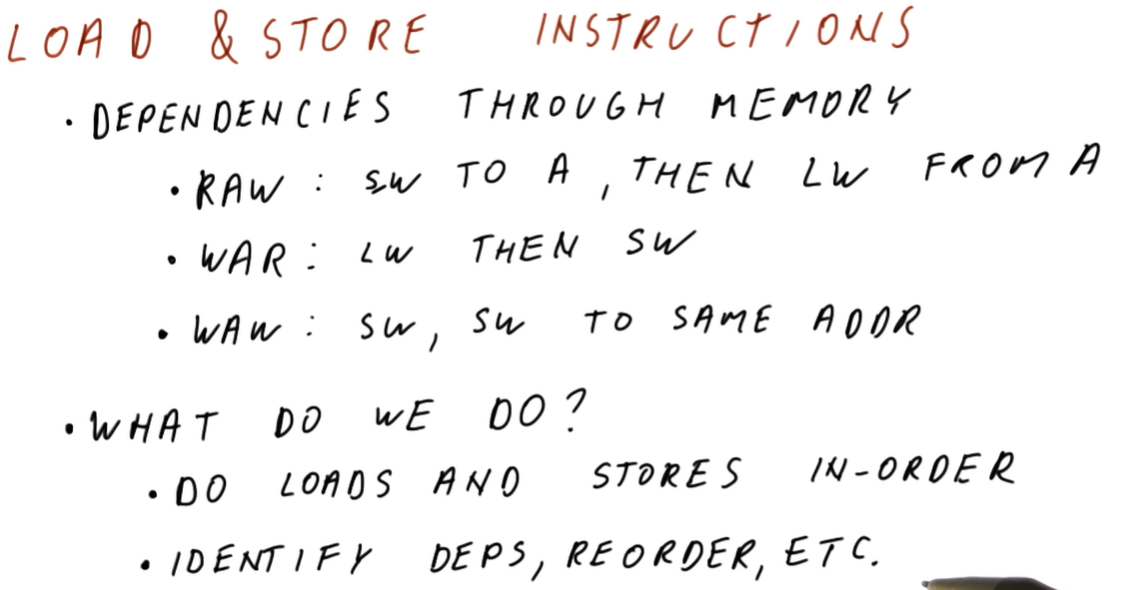 LOAD & STORE INSTRUCTIONS
• DEPENDENCIES THROUGH MEMORY
• RAW : SW TO A , THEN LW FROM A
• WAR : LW THEN SW
• WAW : SW, SW TO SAME ADDR
• WHAT DO WE DO?
• DO LOADS AND STORES IN-ORDER
• IDENTIFY DEPS, REORDER, ETC.